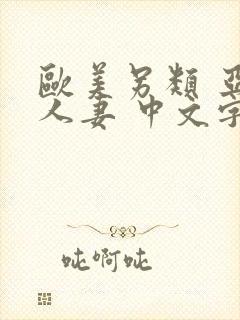 歐美另類 亞
人妻 中文字
吡啊吡